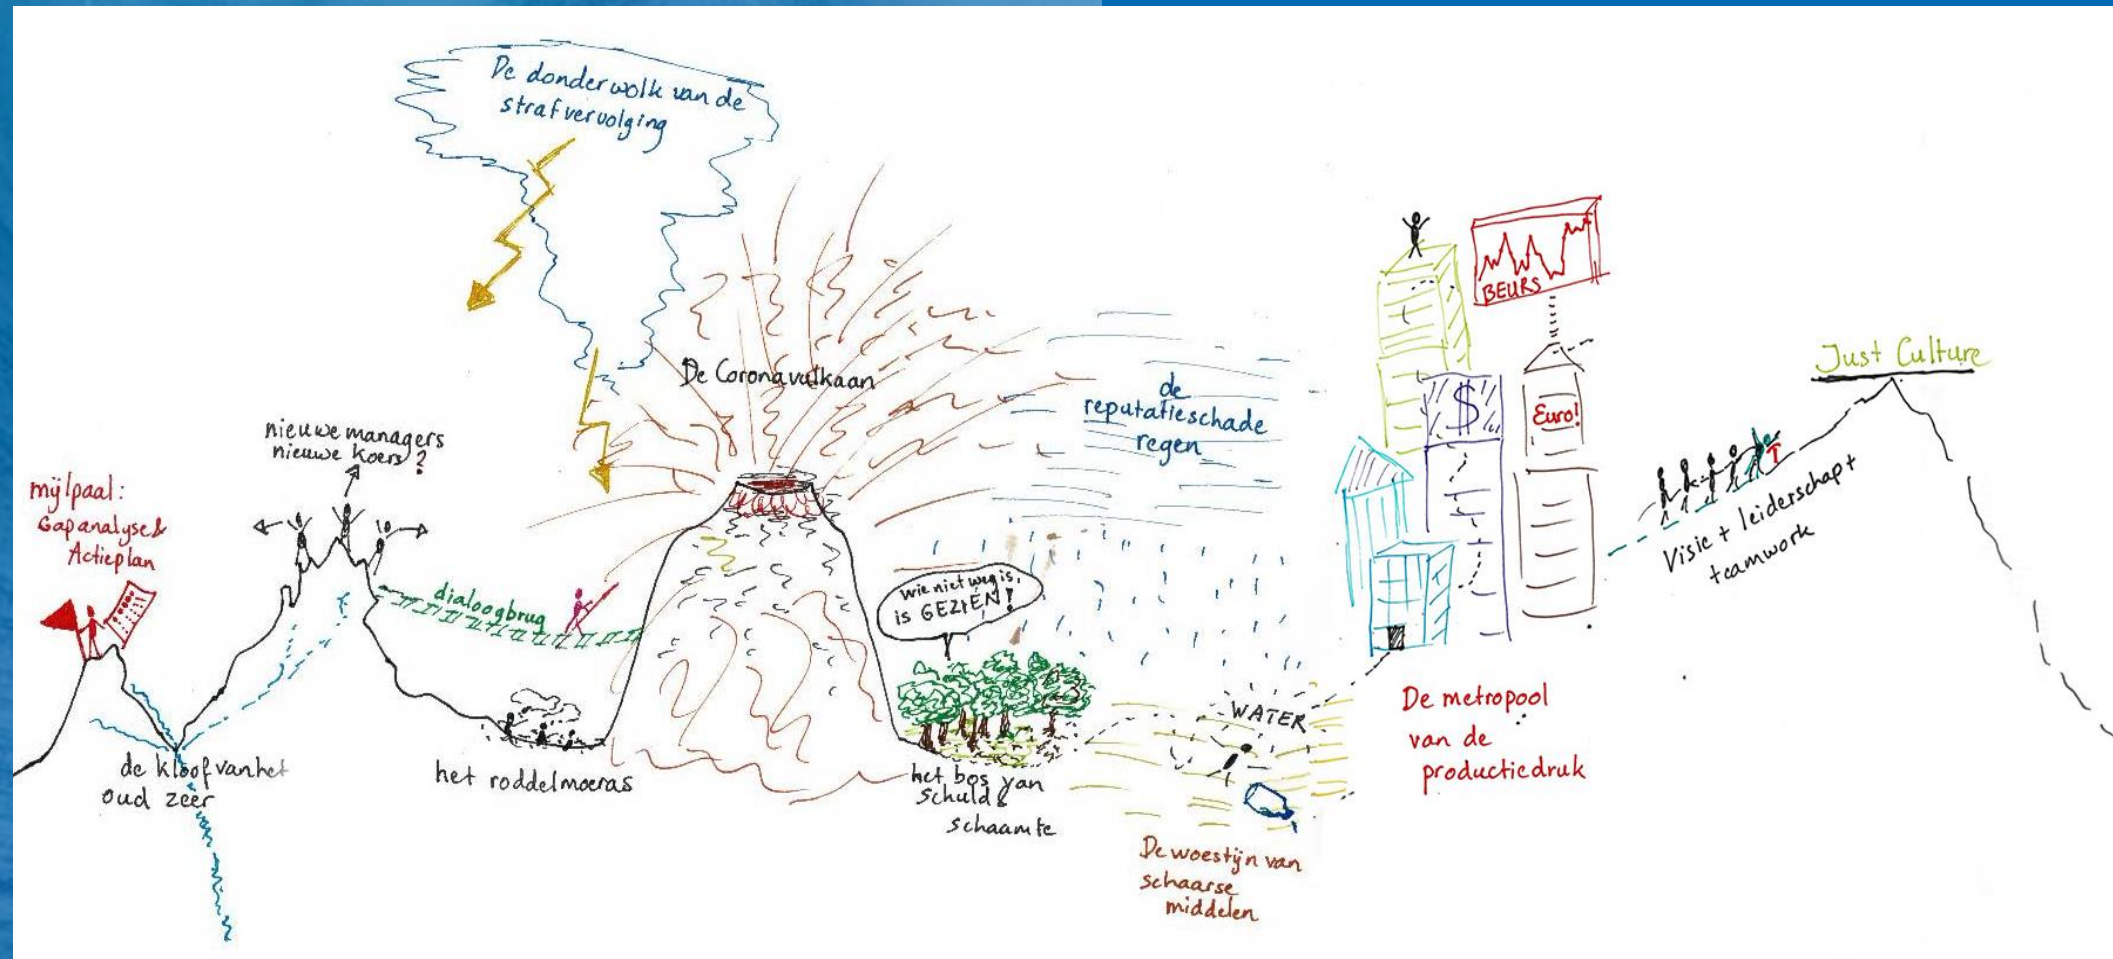 De donderwolk van de
strafvervolging
De Coronavulkaan
nieuwe managers
nieuwe koers?
mijlpaal:
Gapanalyse &
Actieplan
dialoogbrug
de kloof van het
oud zeer
het roddelmoeras
wie niet weg is,
is GEZIEN!
het bos van
schuld &
schaamte
de
reputatieschade
regen
WATER
De woestijn van
schaarse
middelen
BEURS
$
Euro!
De metropool
van de
productiedruk
Visie + leiderschap +
teamwork
Just Culture